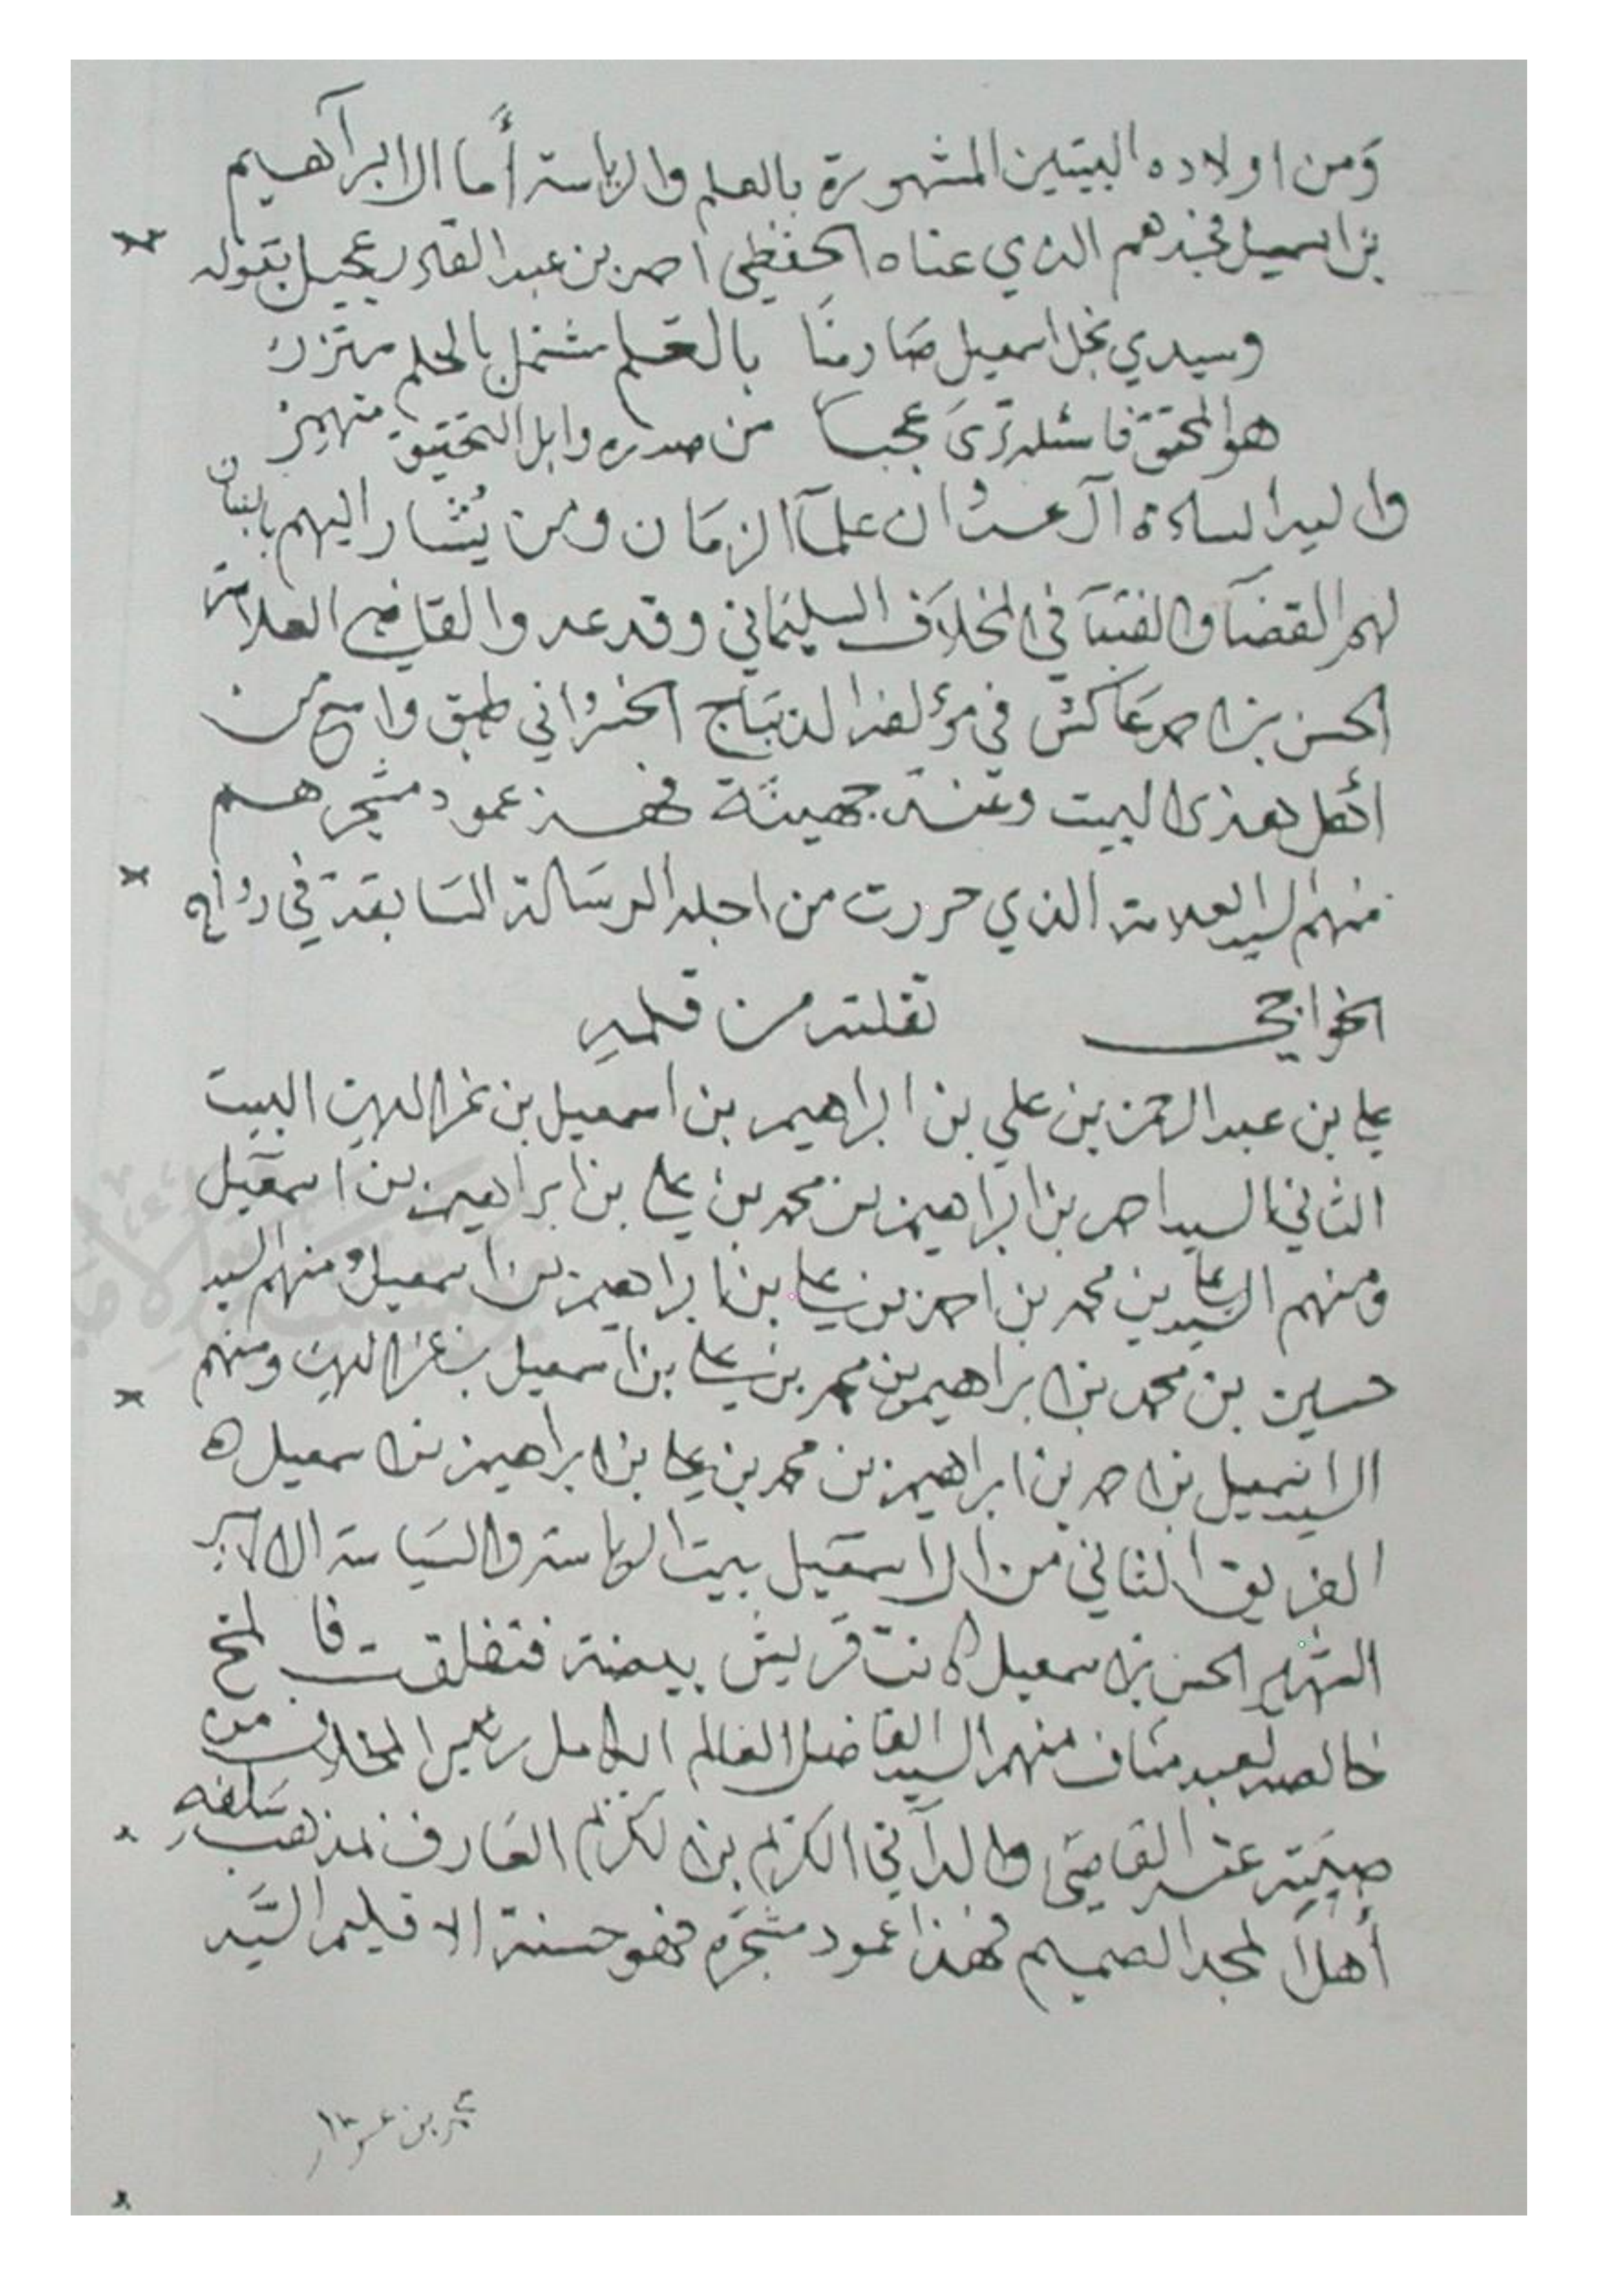 وَمن اولاده البيتين المشهورة بالعلم والرياسة أَما ال ابرآهيم
بن اسمعيل فجدهم الذي عناه الحفظي احمد بن عبدالقادر عجيل بقوله
وسيدي نجل اسمعيل صَارمنَا بالعلم مشتمل بالحلم متزر
هو المحقق فاسئله ترَى عجباً من صدره وابل التحقيق منهمر
وال السادة آل عدوان علمآ الزمَان ومن يُشار اليهم بالبنان
لهم القضآ والفتيآ في المخلاف السليمَاني وقد عدو القاضي العلامة
الحسن بن احمد عَاكش في مؤلفه الديبَاج الخسرُاني طبق واسع من
أهل هذى البيت وعند جهينة فهذ عمود مشجرهم
منهم السيد العلامة الذي حررت من اجله الرسَالة السَابقة في
الخواجي نقلته من قلمه
علي بن عبدالرحمن بن علي بن ابراهيم بن اسمعيل بن عزالدين البيت
الثاني السيد احمد بن ابراهيم بن محمد بن علي بن ابراهيم بن اسمعيل
ومنهم السيد علي بن محمد بن احمد بن علي بن ابراهيم بن اسمعيل ومنهم السيد
حسين بن محمد بن ابراهيم بن محمد بن علي بن اسمعيل بن عزالدين ومنهم
السيد اسمعيل بن احمد بن ابراهيم بن محمد بن علي بن ابراهيم بن اسمعيل ه
الفريق الثاني من ال اسمعيل بيت الرياسة والسيَاسة ال الامير
الشهير الحسن بن اسمعيل كانت قريش بيضة فتفلقت فا لمخ
خالصه لعبد منَاف منهم السيد الفاضل العالم الكامل رئيس المخلاف من
صيته عند القاصَي والدآني الكريم بن الكريم العَارف بمذهب سَلفه
أهلَ المجد الصميم فهذا عمود مشجَره فهو حسنة الاقليم السَّيد